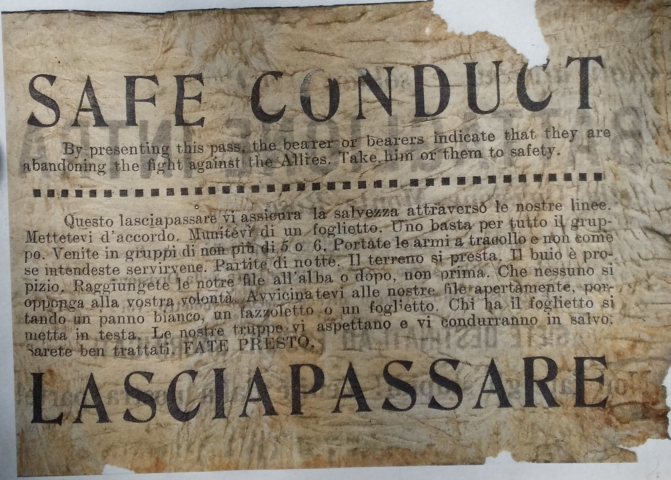 SAFE CONDUCT
By presenting this pass, the bearer or bearers indicate that they are
abandoning the fight against the Allies. Take him or them to safety.
Questo lasciapassare vi assicura la salvezza attraverso le nostre linee.
Mettetevi d'accordo. Munitevi di un foglietto. Uno basta per tutto il grup-
po. Venite in gruppi di non più di 5 o 6. Portate le armi a tracollo e non come
se intendeste servirvene. Partite di notte. Il terreno si presta. Il buio è pro-
pizio. Raggiungete le notre file all'alba o dopo, non prima. Che nessuno si
opponga alla vostra volontà. Avvicinatevi alle nostre file apertamente, por-
tando un panno bianco, un fazzoletto o un foglietto. Chi ha il foglietto si
metta in testa. Le nostre truppe vi aspettano e vi condurranno in salvo.
Sarete ben trattati. FATE PRESTO.
LASCIAPASSARE